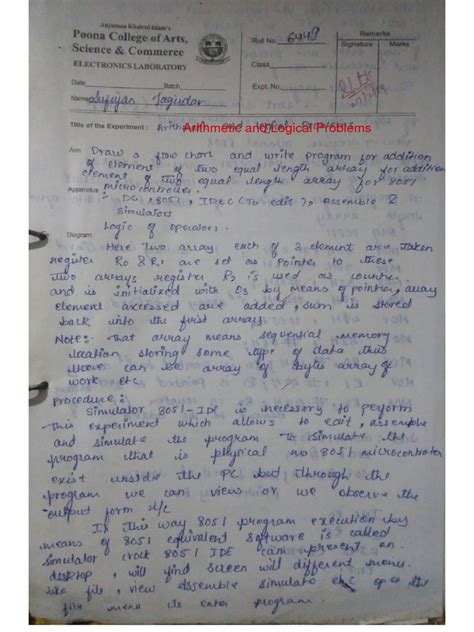 Anjuman Khairul Islam's
Poona College of Arts,
Science & Commerce
ELECTRONICS LABORATORY
Roll No. 6449
Remarks
Signature Marks
Class
Date Batch
Expt. No.
Name Sufiyan
Title of the Experiment : Arithmetic and Logical Problems
Aim Draw a flow chart and write program for addition
of element of two equal length array for addition
element of two equal length array for 8051
microcontroller.
Apparatus : PC, 8051, IDE (To edit), assemble &
Simulators
Logic of operators.
Diagram
Here Two array each of 3 element are taken
register R0 & R1 are set as Pointer to these
two arrays register R2 is used as counter
and is initialized with 03 by means of pointer, array
element accessed are added, sum is stored
back into the first array.
NOTE: That array means sequential memory
location storing some type of data thus
there can be array of byte array of
work etc.
Procedure :
Simulator 8051-IDE is necessary to perform
this experiment which allows to edit, assemble
and simulate the program To simulate the
program that is physical no 8051 microcontroller
exist inside the PC but through the
program we can view or we observe the
output form
In this way, 8051 program execution by
means of 8051 equivalent software is called
simulator 8051 IDE can present on
desktop, will find screen will different menu.
like file, view assemble simulate etc open the
file menu to enter program.